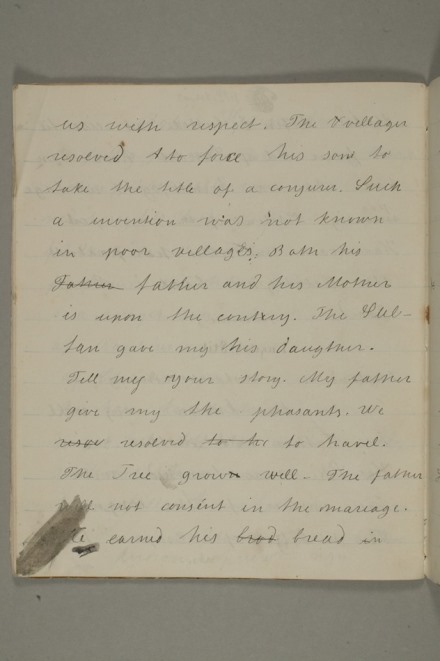 us with respect. The villager
resoeved to force his son to
take the title of a conjurer. Such
a invention was not known
in poor villages. Both his
Father father and his Mother
is upon the contrry. The Sul-
tan gave my his daugther.
Tell mey your story. My father
give my the phasants. We
resoe resolved to tr to travel.
The Tree grown well. The father
not consent in the mariage.
He earned his brod bread in